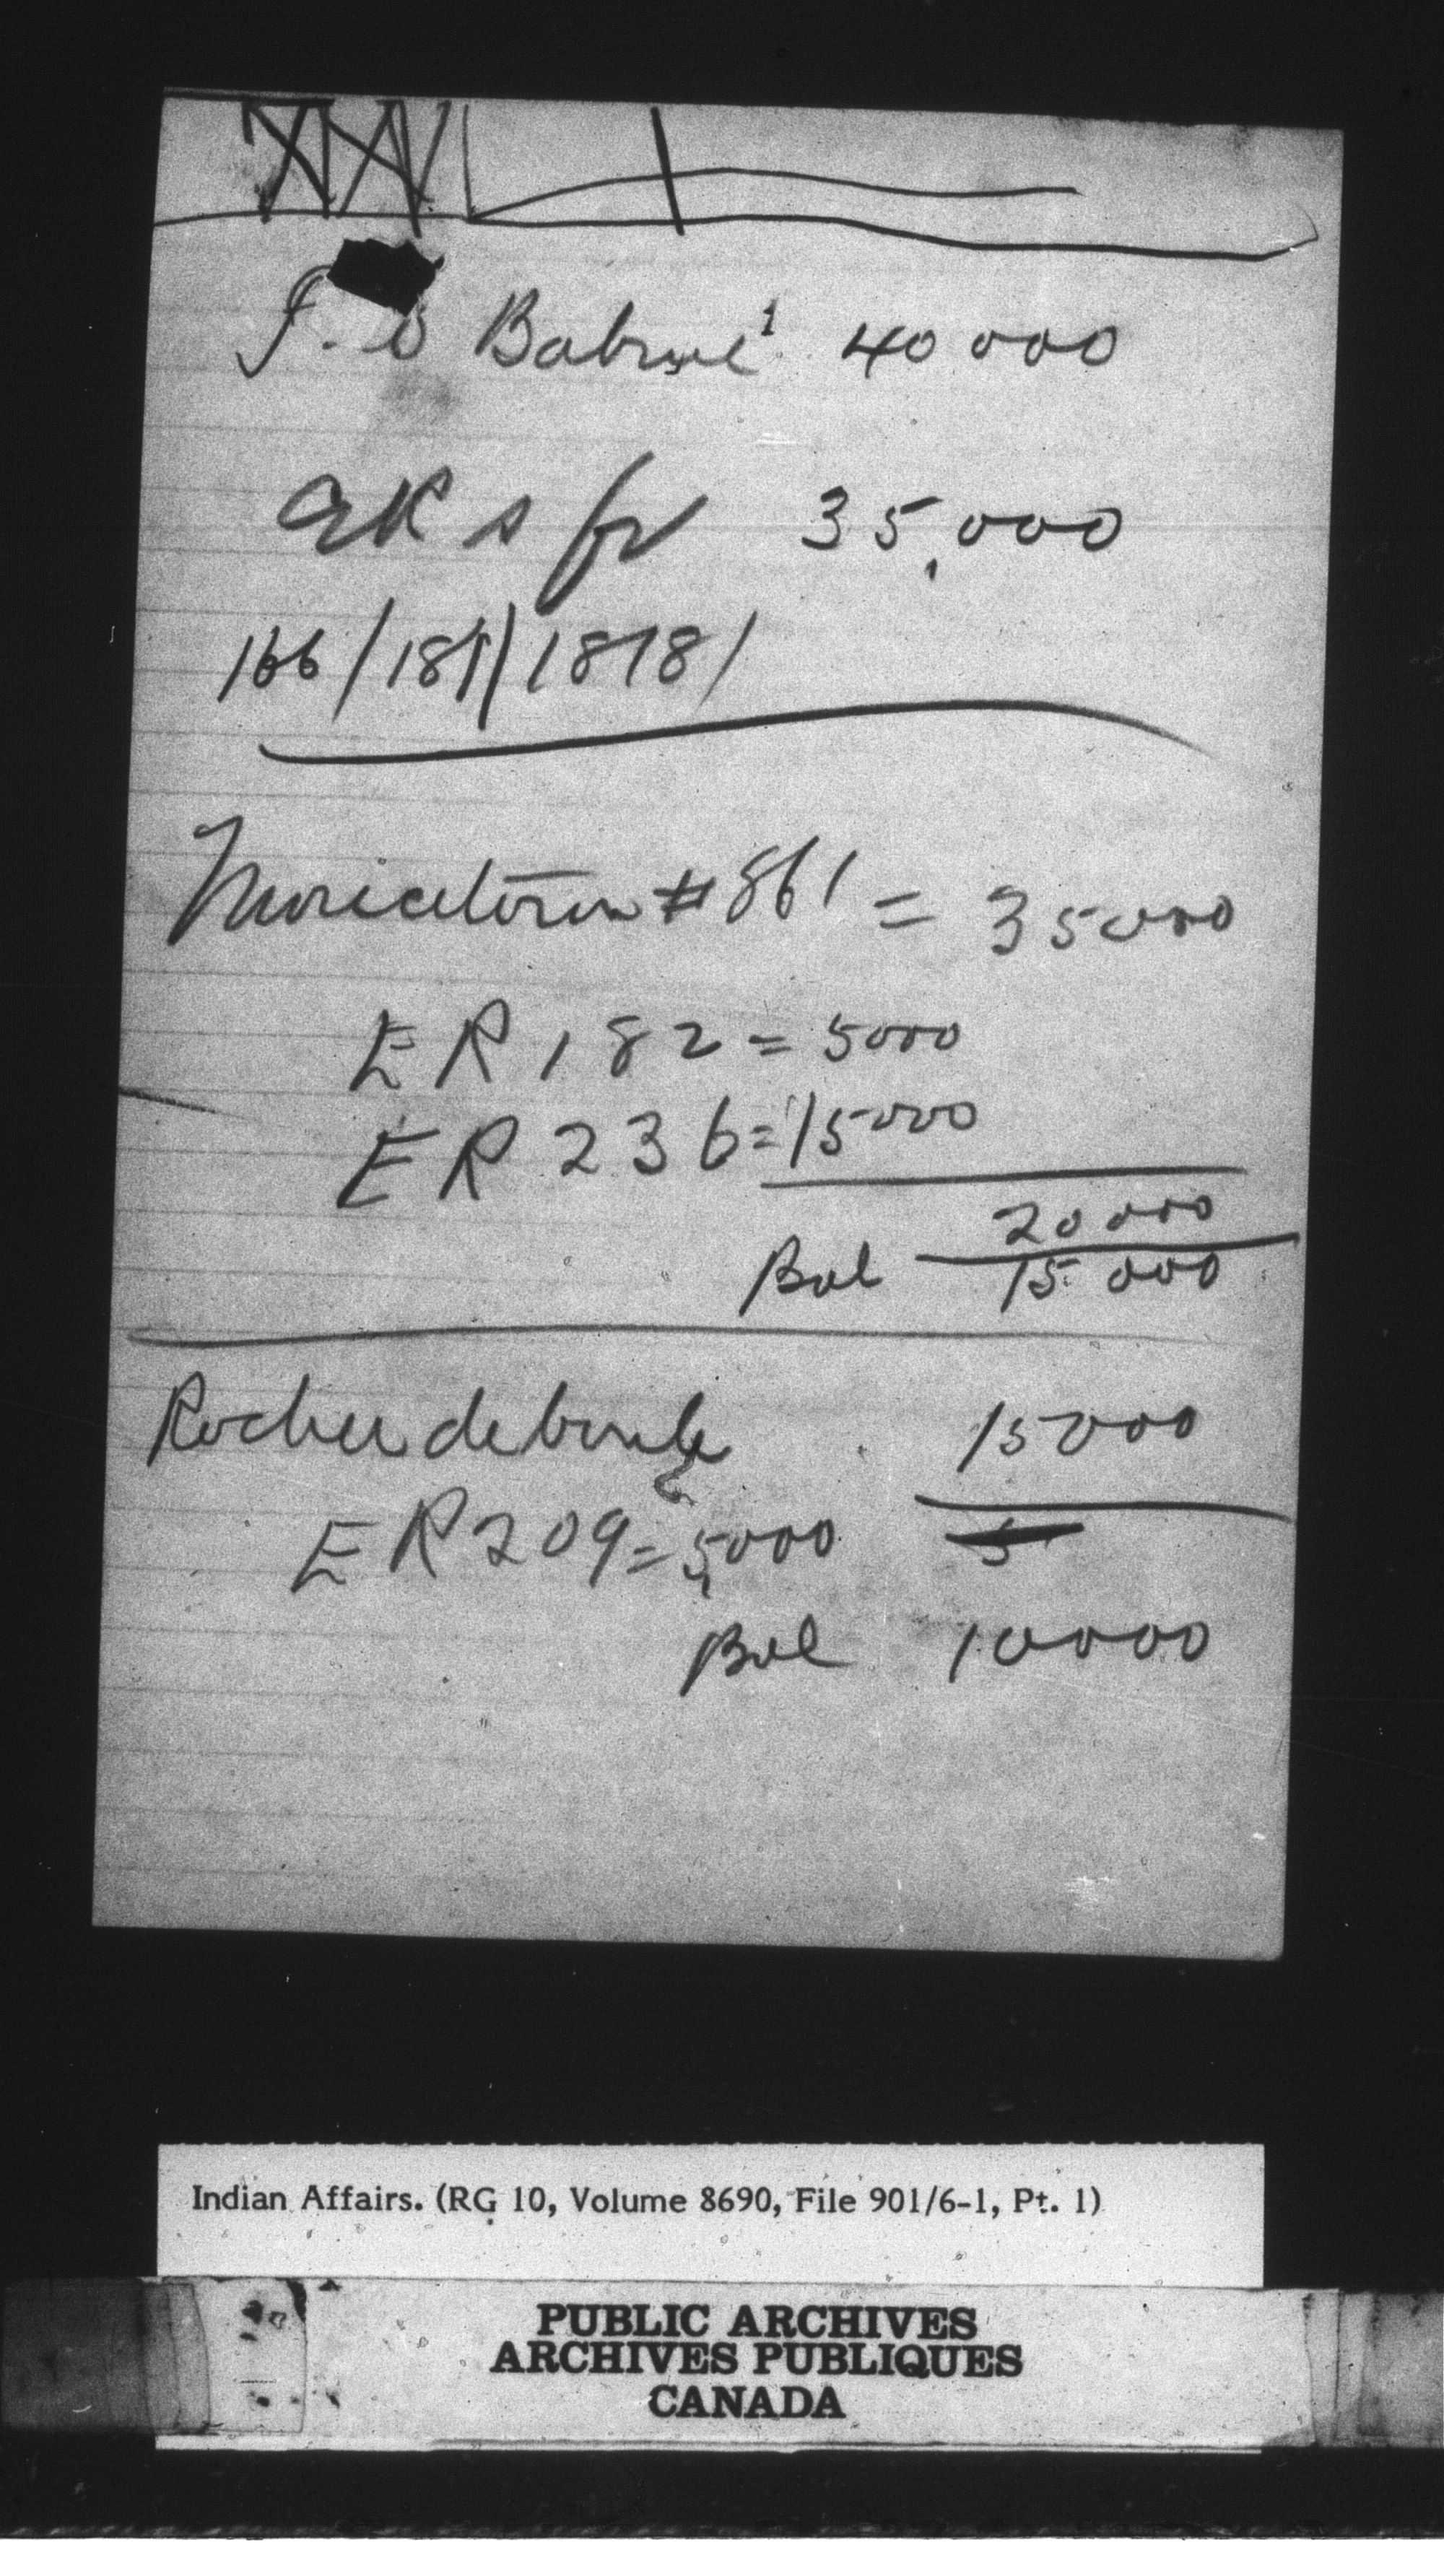 40 000
35,000
166/187/1878/
Moricetown # 861 = 35000
ER 182 = 5000
ER 236 = 15000
20 000
Bal 15 000
Rocher deboule 15000
ER 209 = 5000 5
Bal 10000
Indian Affairs. (RG 10, Volume 8690, File 901/6-1, Pt. 1)
PUBLIC ARCHIVES
ARCHIVES PUBLIQUES
CANADA